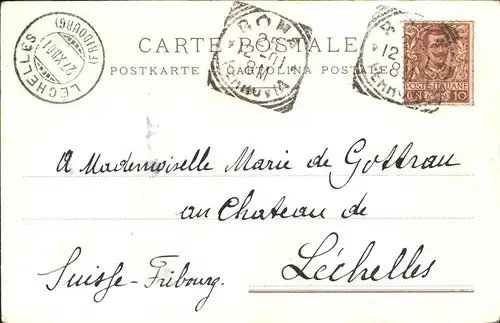 CARTE POSTALE
POSTKARTE CARTOLINA POSTALE
LECHELLES
(FRIBOURG)
27.XII.01
ROMA
POSTE ITALIANE
CENT. 10
A Mademoiselle Marie de Gottrau
au Chateau de
Léchelles
Suisse-Fribourg.